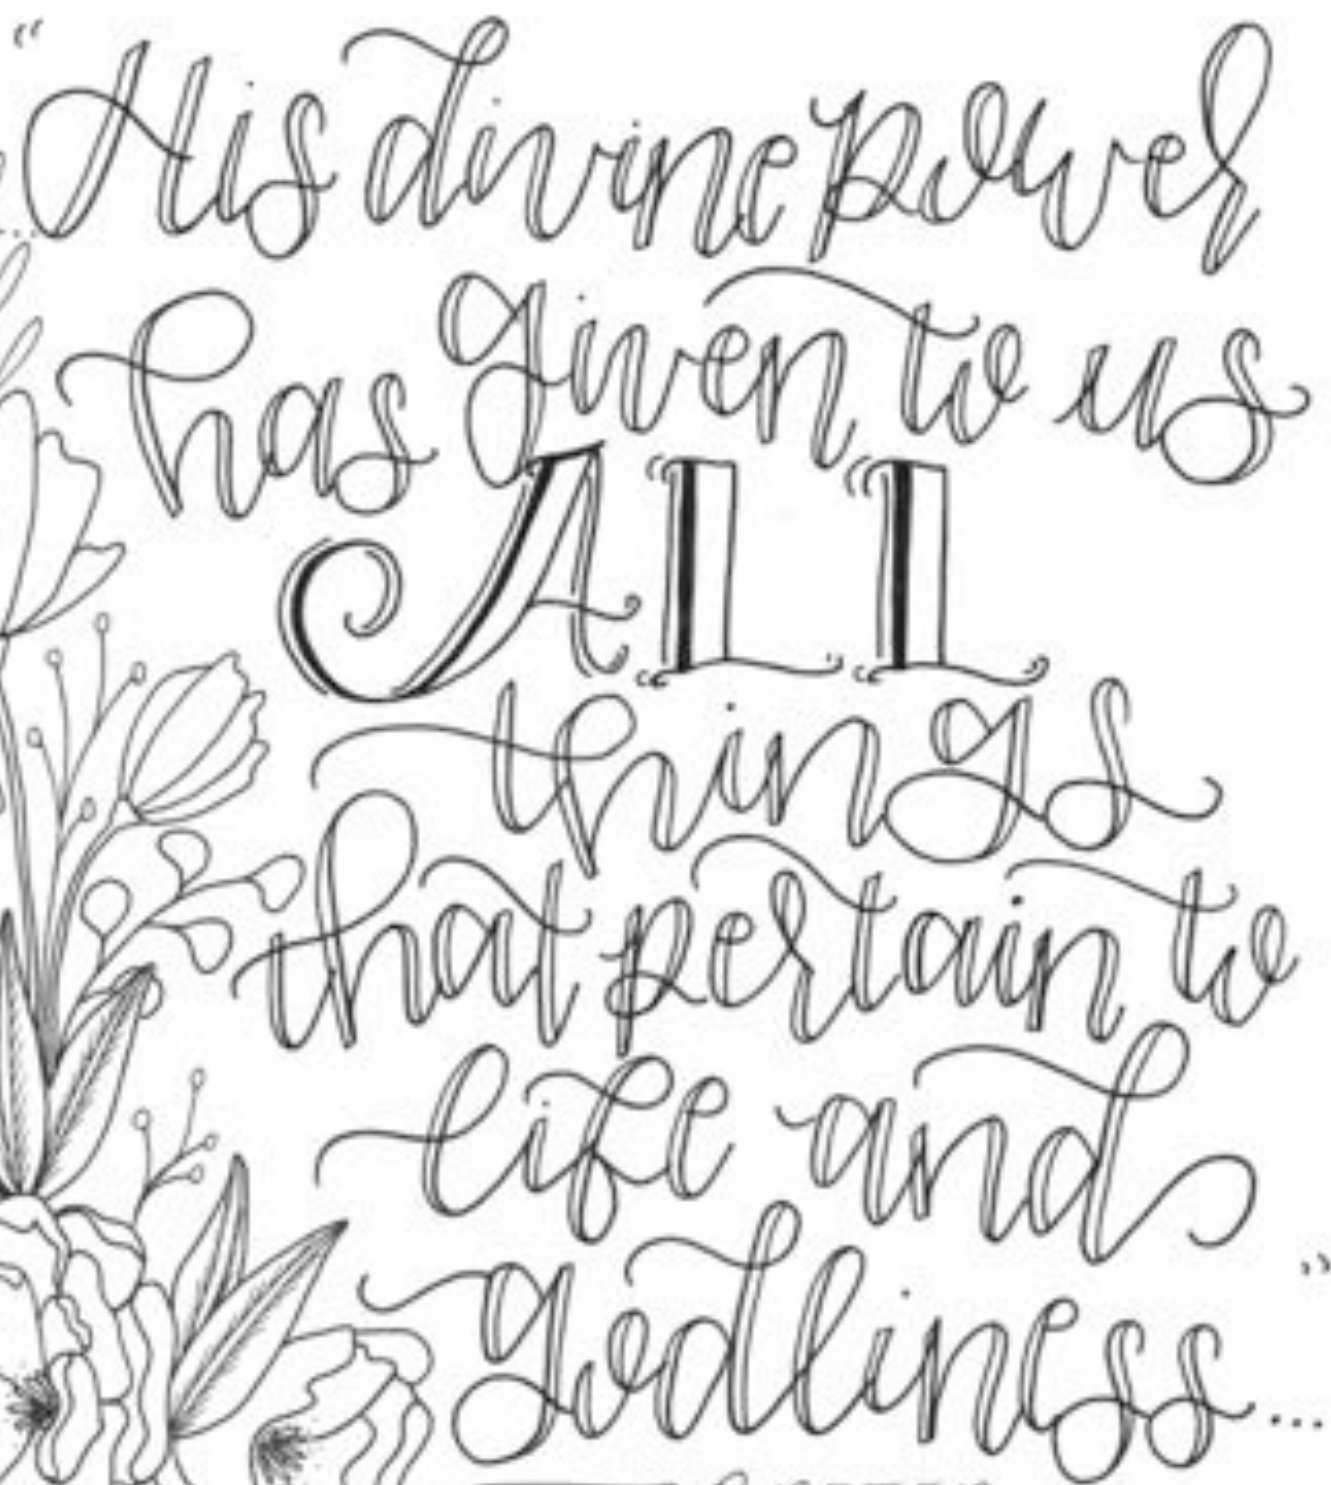 “His divine power
has given to us
ALL
things
that pertain to
life and
godliness...”